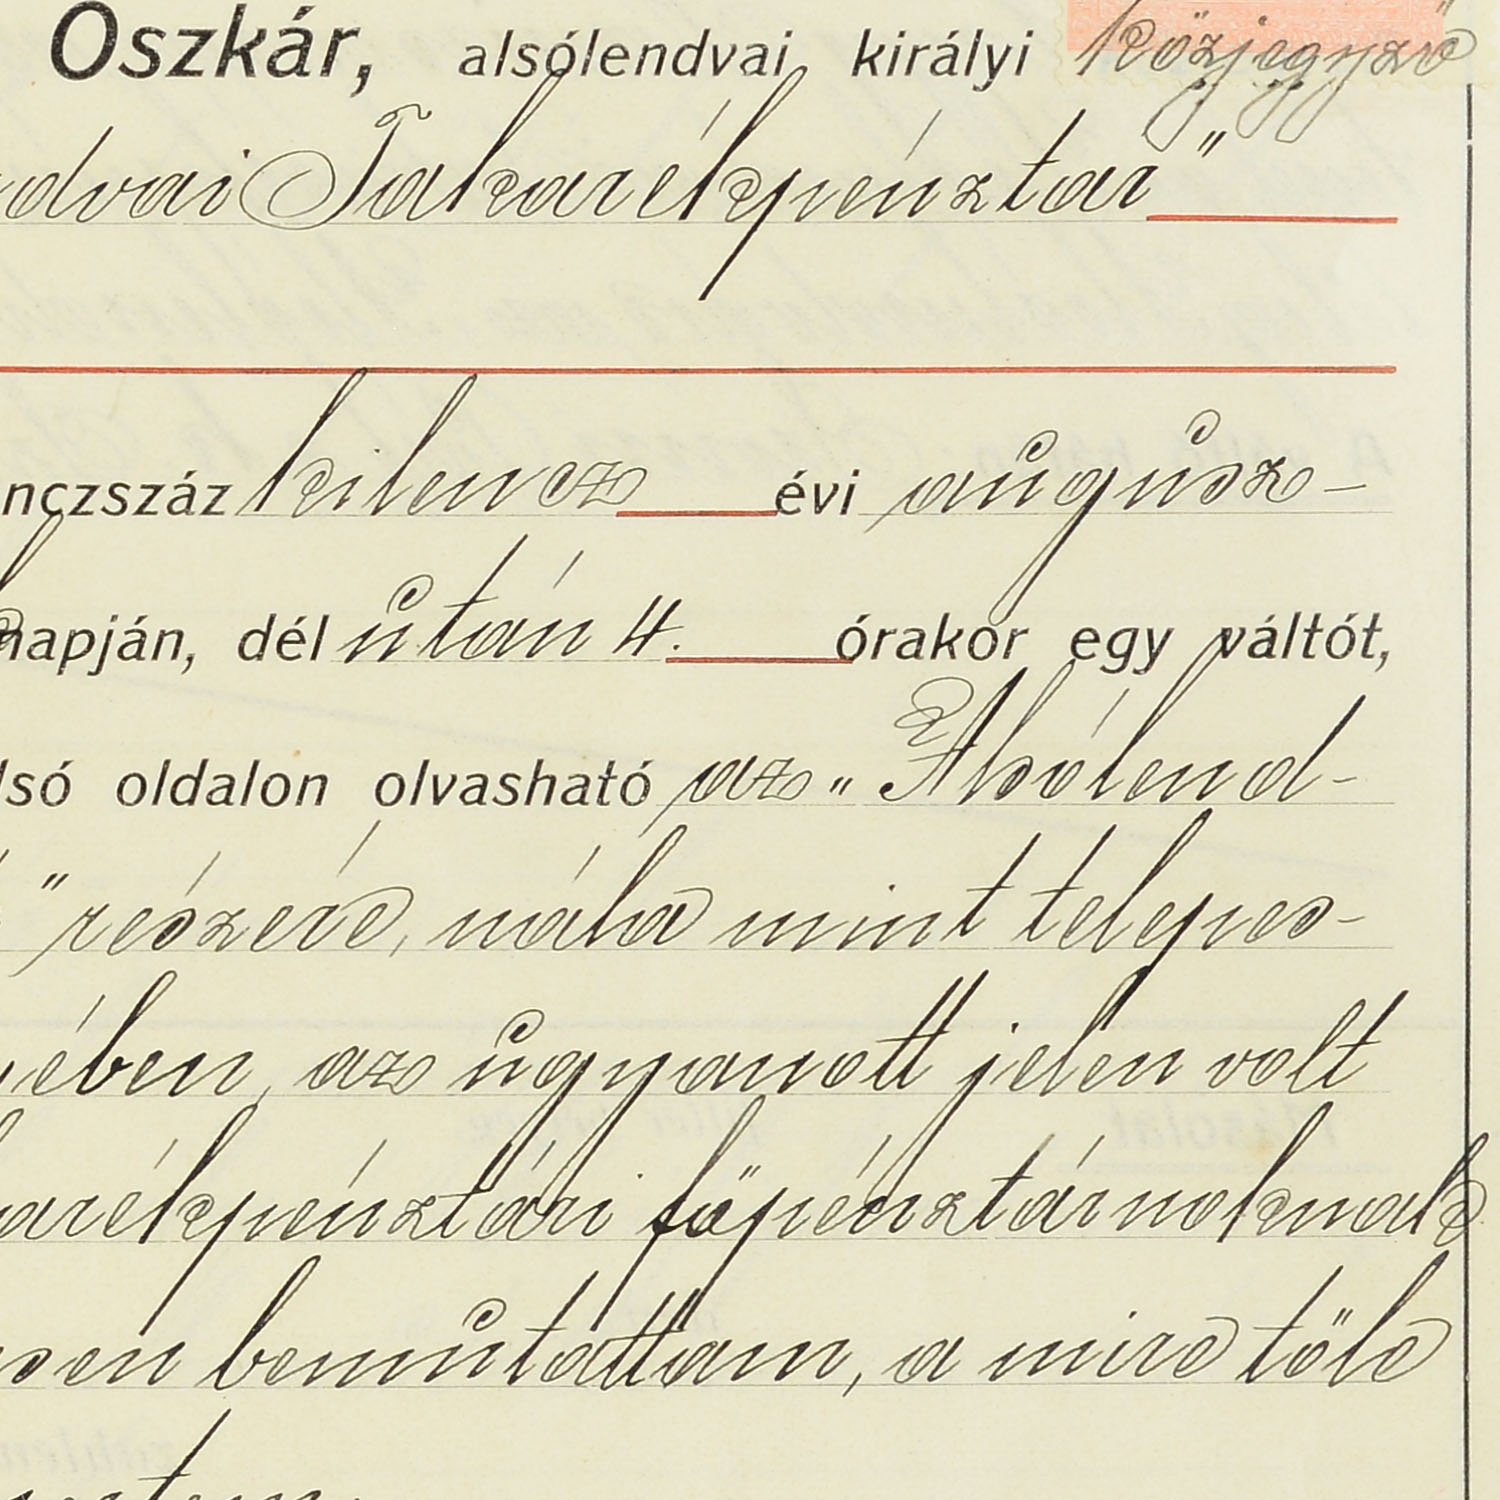 Oszkár, alsólendvai királyi közjegyző
dvai Takarékpénztár"
nczszáz kilencz évi augusz-
napján, dél után 4. órakor egy váltót,
lsó oldalon olvasható az „Alsólend-
" részére, nála mint telepes-
ében, az ugyanott jelen volt
arékpénztári főpénztárnoknak
sen bemutattam, a mire tőle